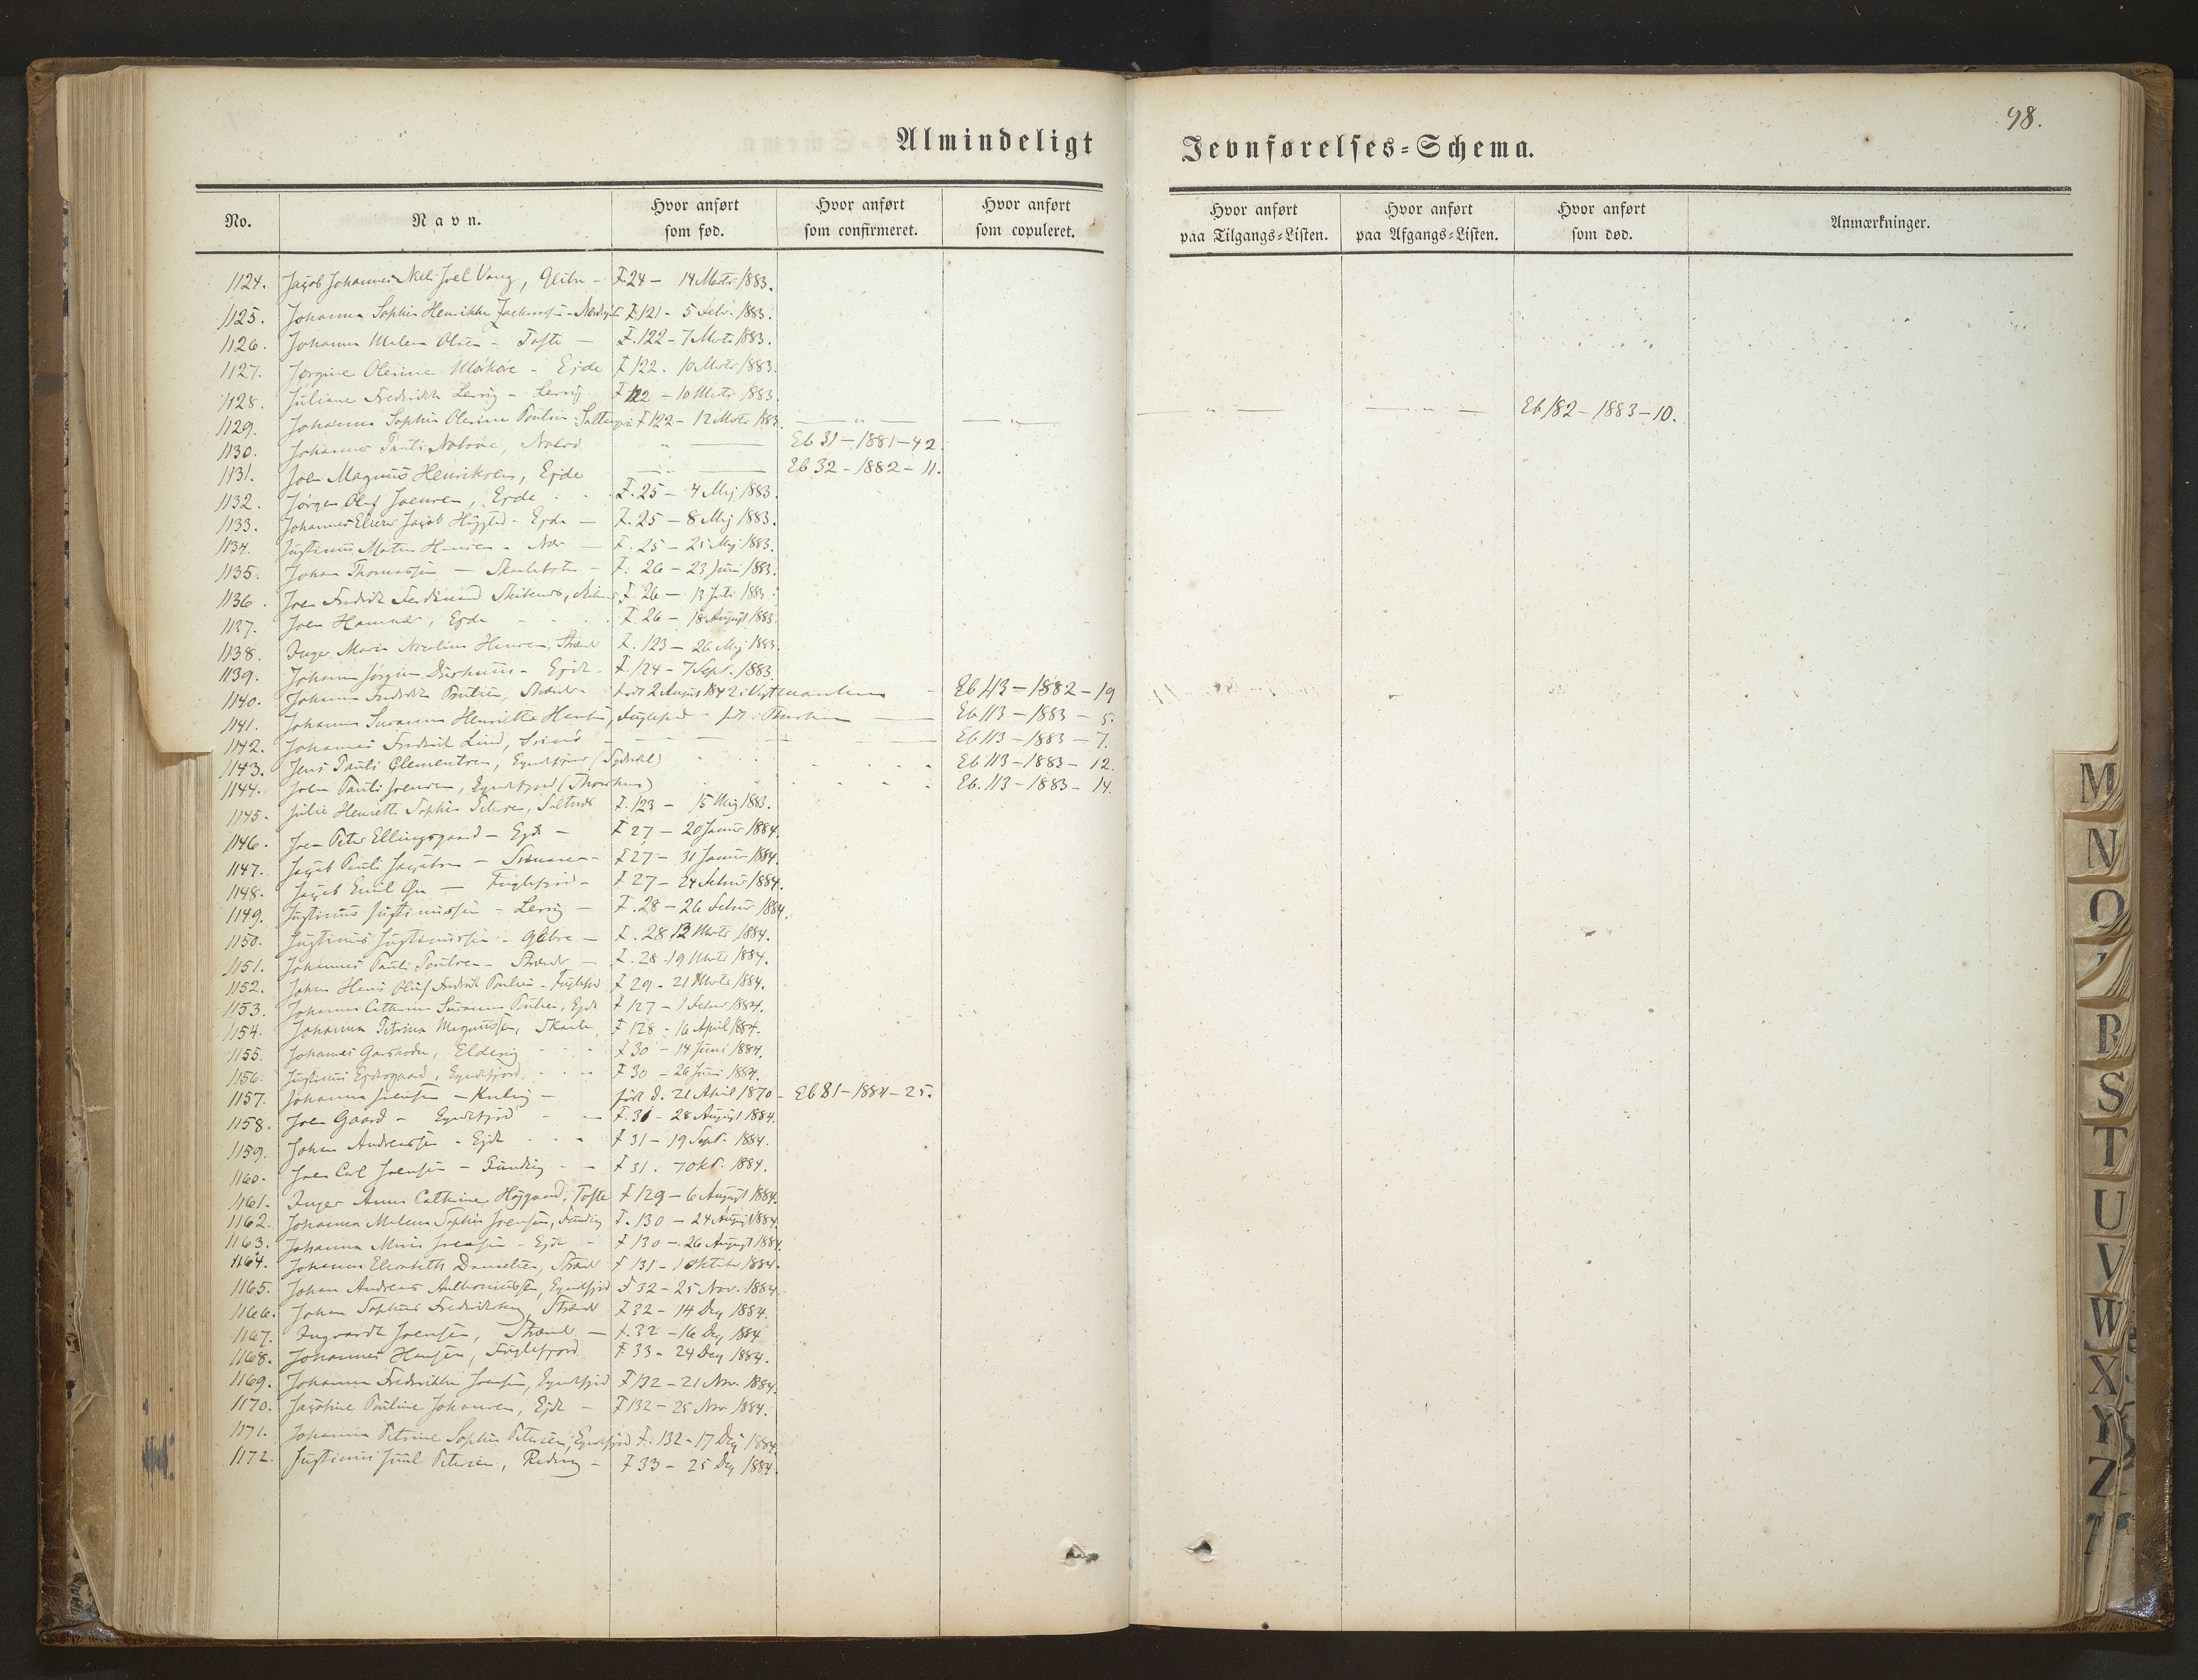 98.
Almindeligt Jevnførelses-Schema.
No. Navn. Hvor anført som fød. Hvor anført som confirmeret. Hvor anført som copuleret. Hvor anført paa Tilgangs-Listen. Hvor anført paa Afgangs-Listen. Hvor anført som død. Anmærkninger.
1124. Jacob Johannes Niels Joel Vang, F. 24 – 14 Marts 1883.
1125. Johanna Sophie Henrikke F. 121 – 5 Febr. 1883.
1126. Johanna Malene Olsen – Tofte – F. 122 – 7 Marts 1883.
1127. Jørgine Olevine Mørkøre – Ejde F 122. 10 Marts 1883.
1128. Juliane Fredrikke Lervig – Lervig. F 122 – 10 Marts 1883.
1129. Johanna Sophie Olevine Poulin F 122 – 12 Marts 1883. – " – – " – – " – – " – Eb 182 – 1883 – 10.
1130. Johannes Pauli Nolsøe, " – Eb 31 – 1881 – 42
1131. Joen Magnus Henriksen, Ejde – Eb 32 – 1882 – 11.
1132. Jørgen Oluf Joensen, Ejde F. 25 – 4 Maj 1883.
1133. Johannes Jacob – Ejde – F. 25 – 8 Maj 1883.
1134. Justinus Hansen – – F. 25 – 25 Maj 1883.
1135. Johan Thomassen – – F. 26 – 23 Juni 1883.
1136. Joen Fredrik Ferdinand F. 26 – 13 Juli 1883.
1137. Joen Hammer, Ejde F. 26 – 18 August 1883.
1138. Inger Maria Nicoline Hansen, Strænd F. 123 – 26 Maj 1883.
1139. Johanne Jørgine Dürhuus – Ejde F. 124 – 7 Sept. 1883.
1140. Johanne Fredrikke Poulsen, Strænd – født 2 August 1842 i Vestmanhavn – Eb 113 – 1882 – 19
1141. Johanne Susanne Henriette Hansen, Fuglefjord – født i Thorshavn – Eb 113 – 1883 – 5.
1142. Johannes Fredrik Lind, – Eb 113 – 1883 – 7.
1143. Jens Pauli Clementsen, Eyndefjord Eb 113 – 1883 – 12.
1144. Joen Pauli Joensen, Eyndefjord (Thorshavn) Eb. 113 – 1883 – 14.
1145. Julie Henriette Sophie Petersen, F. 123 – 15 Maj 1883.
1146. Joen Peter Ellingsgaard – Ejde – F 27 – 20 Januar 1884.
1147. Jacob Pauli Jacobsen – – F 27 – 31 Januar 1884.
1148. Jacob Emil – Fuglefjord – F 27 – 24 Februar 1884.
1149. Justinus Justinussen – Lervig – F. 28 – 26 Februar 1884.
1150. Justinus Justinussen – – F. 28 12 Marts 1884.
1151. Johannes Pauli Poulsen – Strænd – F. 28 – 19 Marts 1884.
1152. Johan Hans Oluf Fredrik Poulsen – Fuglefjord F 29 – 21 Marts 1884.
1153. Johanne Cathrine Susanne Poulsen, Ejde F 127 – 1 Februar 1884.
1154. Johanna Petrina Magnussen, F 128 – 16 April 1884.
1155. Johannes Garshodn, Eldevig F 30 – 14 Juni 1884.
1156. Justinus Ejdesgaard, Eyndefjord F 30 – 26 Juni 1884.
1157. Johanna Joensen – – født d. 21 April 1870 – Eb 81 – 1884 – 25.
1158. Joen Gaard – Eyndefjord – F. 31 – 28 August 1884.
1159. Johan Andreassen – Ejde F 31 – 19 Sept. 1884.
1160. Joen Carl Joensen – Funding – F 31. 7 Okt. 1884.
1161. Inger Anna Cathrine Højgaard, Tofte F 129 – 6 August 1884.
1162. Johanna Malena Sophie Joensen, Funding F. 130 – 24 August 1884.
1163. Johanna Maria Joensen – Ejde – F 130 – 26 August 1884.
1164. Johanne Elisabeth Danielsen, Strænd F 131 – 1 Oktober 1884.
1165. Johan Andreas Anthoniussen, Eyndefjord F 32 – 25 Nov. 1884.
1166. Johan Sophus Fredriksen, Strænd F 32 – 14 Dec 1884.
1167. Ingvardt Joensen, Strænd – F. 32 – 16 Dec 1884
1168. Johannes Hansen, Fuglefjord F. 33 – 24 Dec 1884.
1169. Johanne Fredrikke Joensen, Eyndefjord F 132 – 21 Nov. 1884.
1170. Jacobine Pauline Johansen, Ejde – F 132 – 25 Nov 1884.
1171. Johanne Petrine Sophie Petersen, Eyndefjord F. 132 – 17 Dec 1884.
1172. Justinus Juul Petersen, – F 33 – 25 Dec 1884.
M
N
O
R
S
T
U
V
W
X
Y
Z